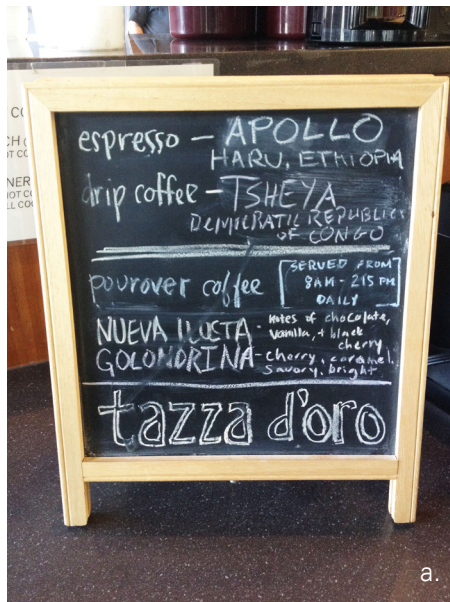 espresso - APOLLO
HARU, ETHIOPIA
drip coffee - TSHEYA
DEMOCRATIC REPUBLIC
OF CONGO
pourover coffee
SERVED FROM
8AM - 215 PM
DAILY
NUEVA LLUSTA - notes of chocolate,
vanilla, + black
cherry
GOLONDRINA - cherry, caramel,
savory, bright
tazza d'oro
a.